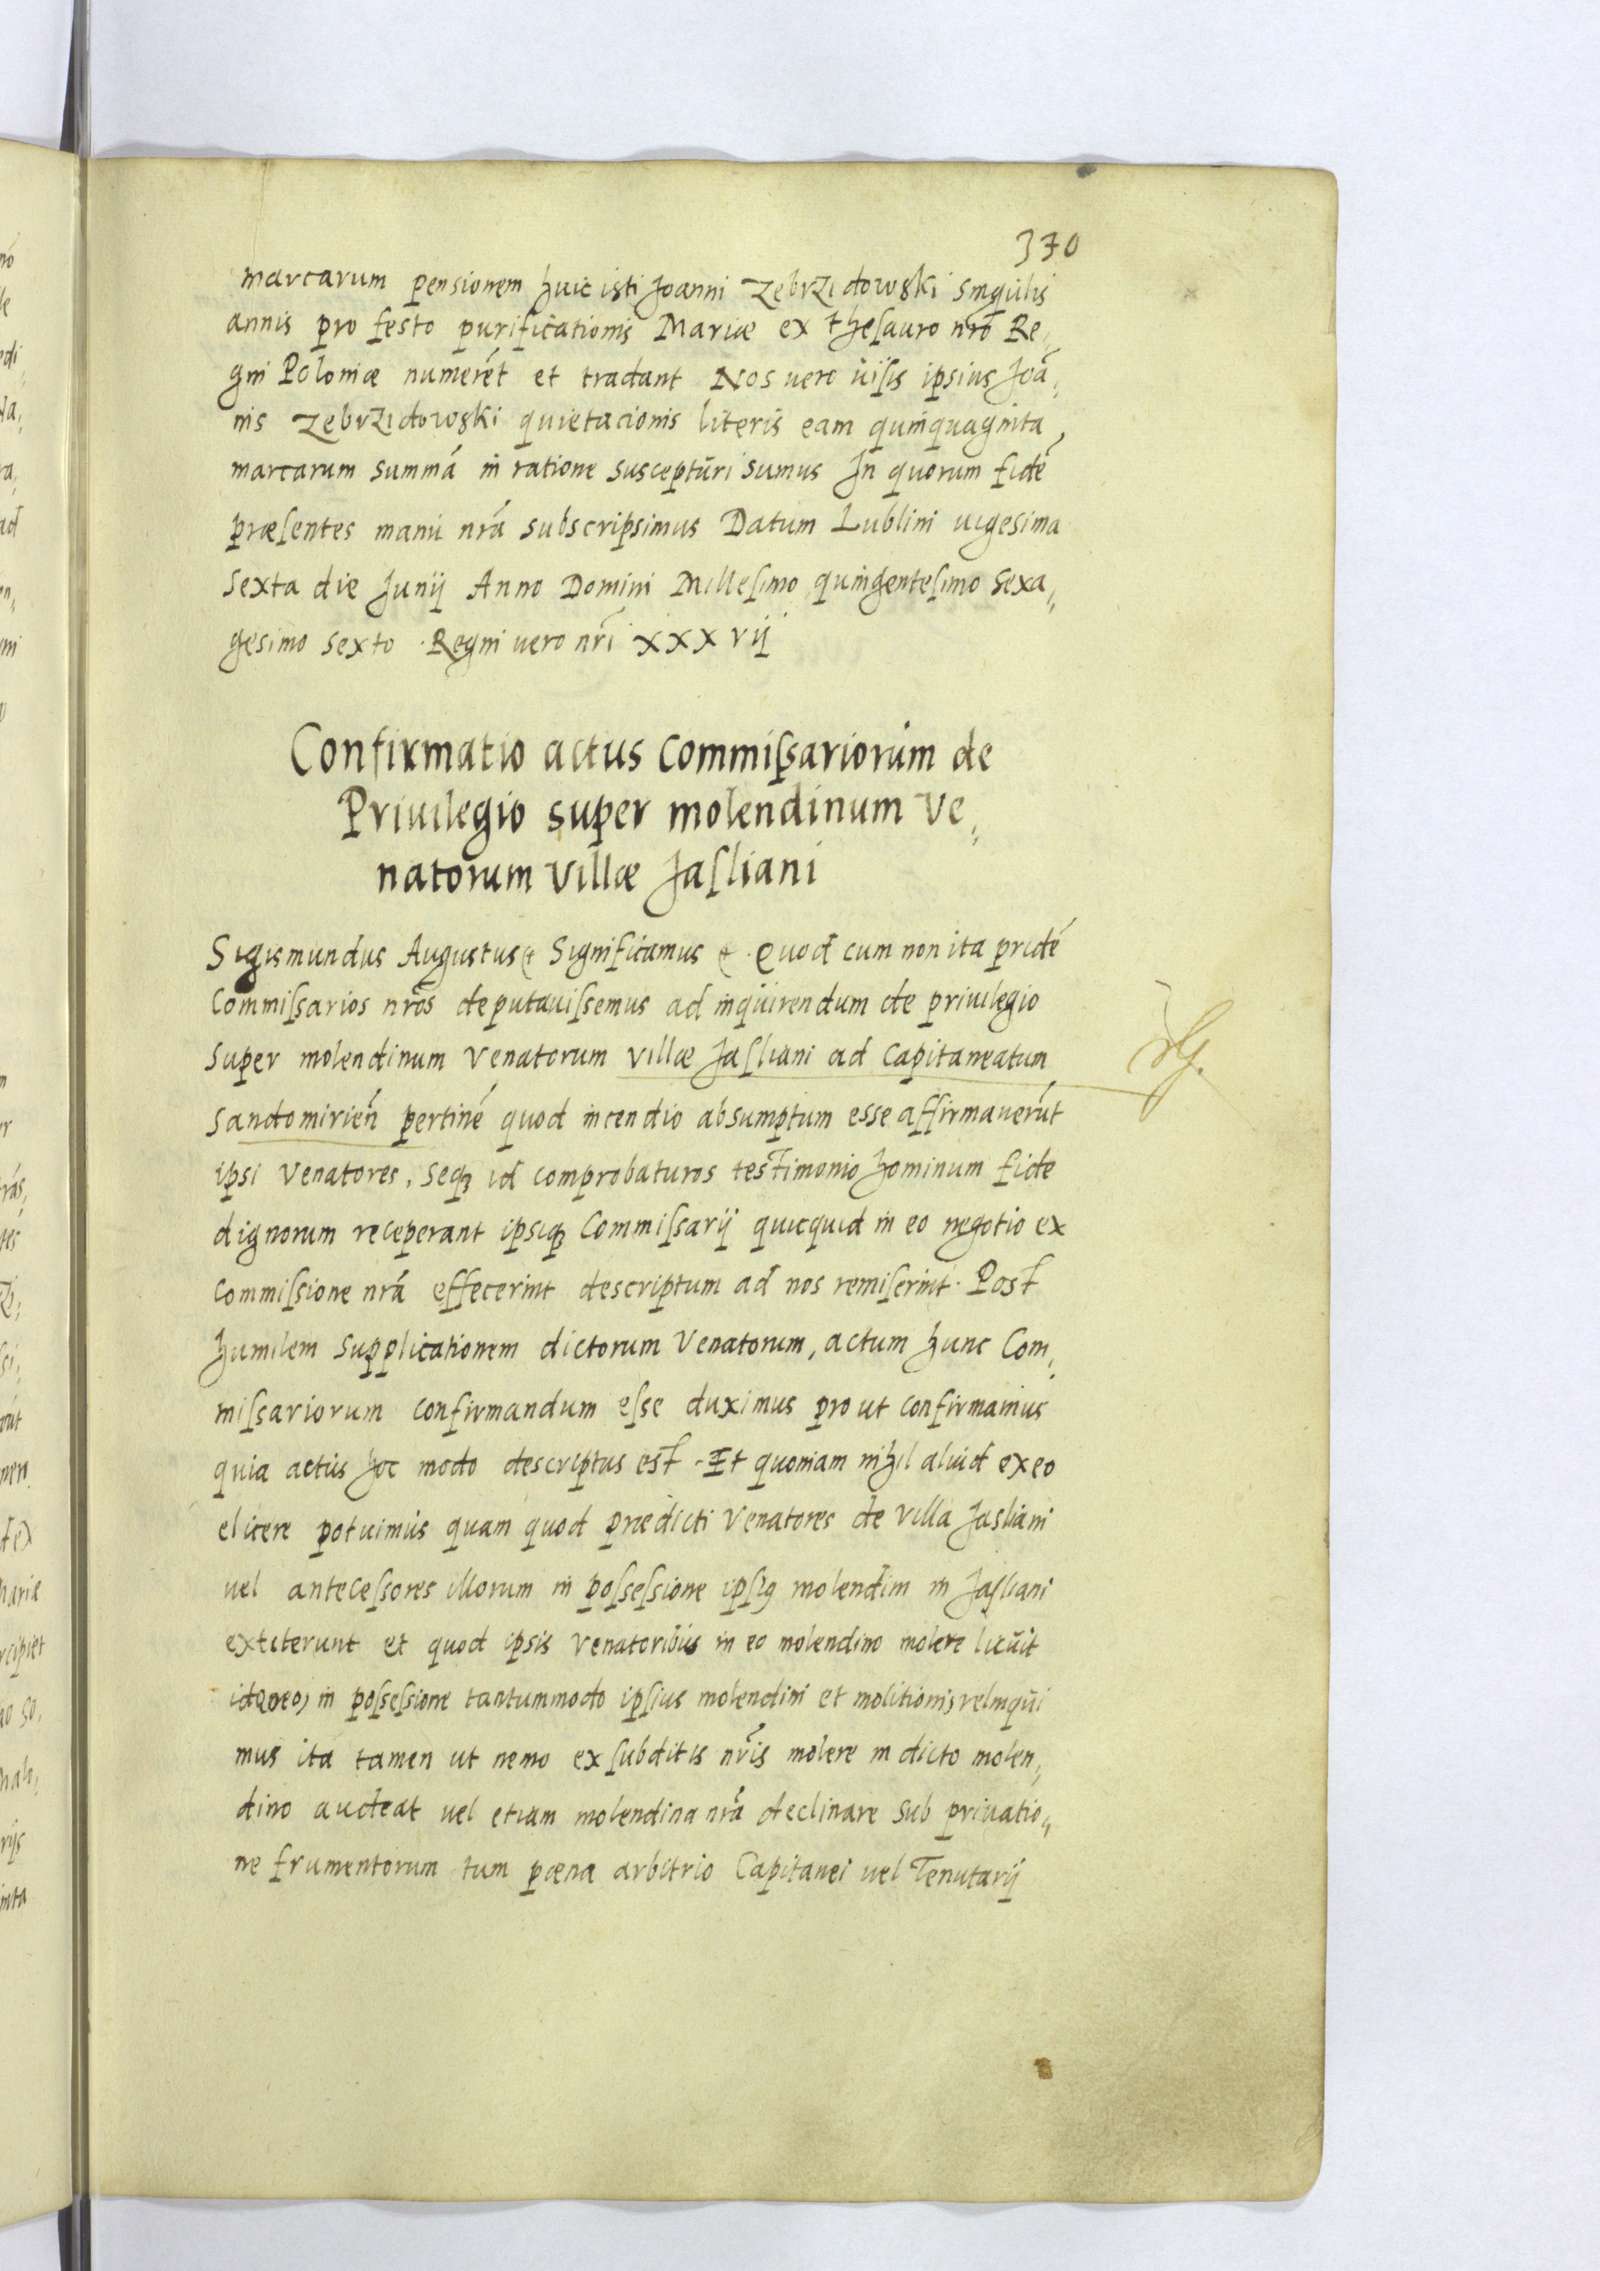 370
marcarum pensionem huic isti Joanni Zebrzidowski singulis
annis pro festo purificationis Mariæ ex theſauro nrõ Re„
gni Poloniæ numerẽt et tradant Nos vero uiſis ipsius Joã„
nis Zebrzidowski quietacionis literis eam quinquaginta
marcarum summã in ratione suscepturi sumus In quorum fidẽ
præſentes manu nrã subscripsimus Datum Lublini uigesima
sexta die Junij Anno Domini Milleſimo quingenteſimo sexa„
gesimo sexto. Regni uero nrĩ xxxvij
Confirmatio actus commiſsariorum de
Priuilegio super molendinum Ve„
natorum villæ Jaſliani
Sigismundus Augustus & Significamus & Quod cum non ita pridẽ
commiſsarios nrõs deputauiſsemus ad inquirendum de priuilegio
super molendinum Venatorum villæ Jaſliani ad capitaneatum
sandomirieñ pertinẽ quod incendio absumptum esse affirmauerũt
ipsi Venatores, seqꝫ id comprobaturos testimonio hominum fide
dignorum receperant ipsiqꝫ Commiſsarij quicquid in eo negotio ex
commiſsione nrã effecerint descriptum ad nos remiſerint. Post
humilem supplicationem dictorum Venatorum, actum hunc Com„
miſsariorum confirmandum eſse duximus pro ut confirmamus
quia actus hoc modo descriptus est. Et quoniam nihil aliud ex eo
elicere potuimus quam quod prædicti Venatores de villa Jasliani
uel anteceſsores illorum in poſseſsione ipſiꝰ molendini in Jaſliani
extiterunt et quod ipsis Venatoribus in eo molendino molere licuit
in poſseſsione tantummodo ipſius molendini et molitionis relinqui
mus ita tamen ut nemo ex ſubditis nrĩs molere in dicto molen„
dino audeat uel etiam molendina nrã declinare sub priuatio„
ne frumentorum tum pœna arbitrio Capitanei uel Tenutarij